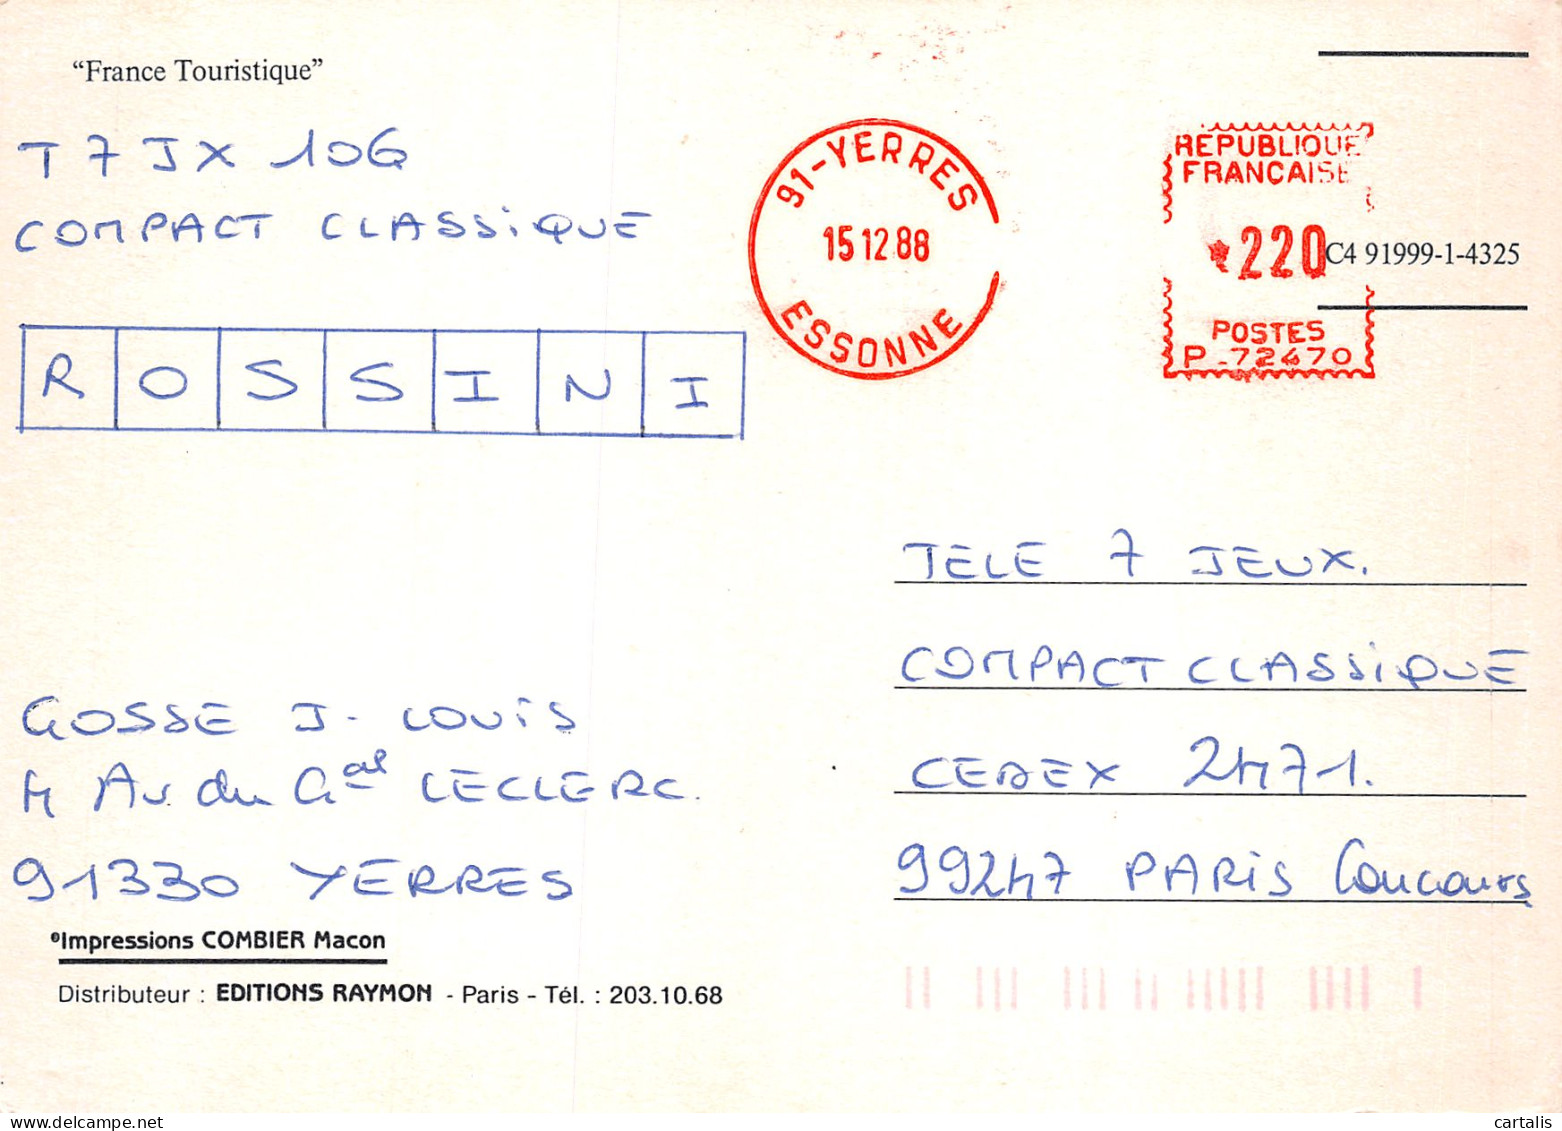 “France Touristique”
T 7 J X 106
COMPACT CLASSiQUE
ROSSINI
91-YERRES
15 12 88
ESSONNE
REPUBLIQUE
FRANCAISE
220
C4 91999-1-4325
POSTES
P-72470
TELE 7 JEUX.
COMPACT CLASSiQUE
CEDEX 2471.
99247 PARiS Concours
GOSSE J- LOUiS
4 Av du Gal LECLERC.
91330 YERRES
©Impressions COMBIER Macon
Distributeur : EDITIONS RAYMON - Paris - Tél. : 203.10.68
cartalis